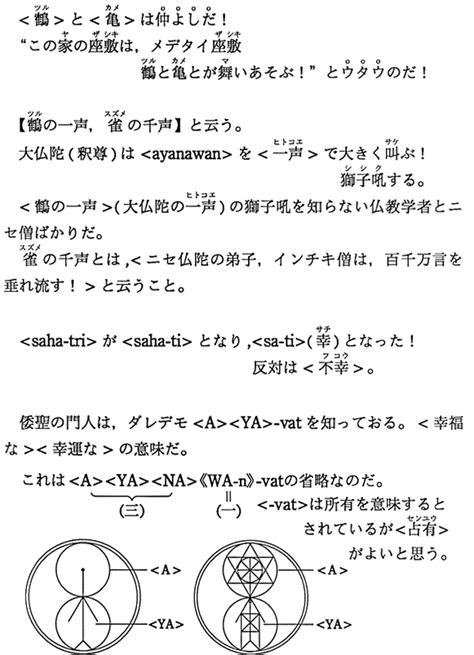 <鶴>と<亀>は仲よしだ！
“この家の座敷は，メデタイ座敷
鶴と亀とが舞いあそぶ！”とウタウのだ！
【鶴の一声，雀の千声】と云う。
大仏陀(釈尊)は<ayanawan>を<一声>で大きく叫ぶ！
獅子吼する。
<鶴の一声>(大仏陀の一声)の獅子吼を知らない仏教学者とニ
セ僧ばかりだ。
雀の千声とは,<ニセ仏陀の弟子，インチキ僧は，百千万言を
垂れ流す！>と云うこと。
<saha-tri>が<saha-ti>となり,<sa-ti>(幸)となった！
反対は<不幸>。
倭聖の門人は，ダレデモ<A><YA>-vatを知っておる。<幸福
な><幸運な>の意味だ。
これは<A><YA><NA>《WA-n》-vatの省略なのだ。
(三) (一) <-vat>は所有を意味すると
されているが<占有>
がよいと思う。
<A> <A>
<YA> <YA>